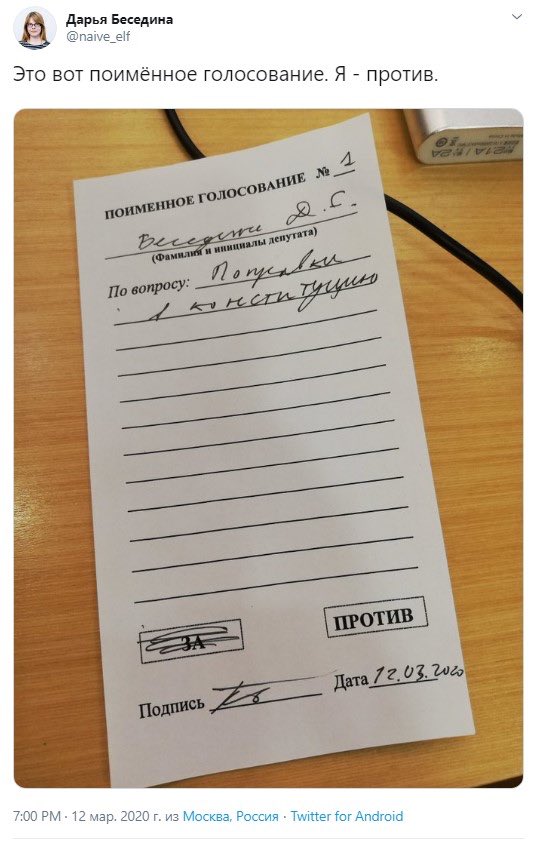 Дарья Беседина
@naive_elf
Это вот поимённое голосование. Я - против.
ПОИМЕННОЕ ГОЛОСОВАНИЕ № 1
Беседина Д. С.
(Фамилия и инициалы депутата)
По вопросу: Поправки
в конституцию
ЗА
ПРОТИВ
Подпись
Дата 12.03.2020
7:00 PM · 12 мар. 2020 г. из Москва, Россия · Twitter for Android